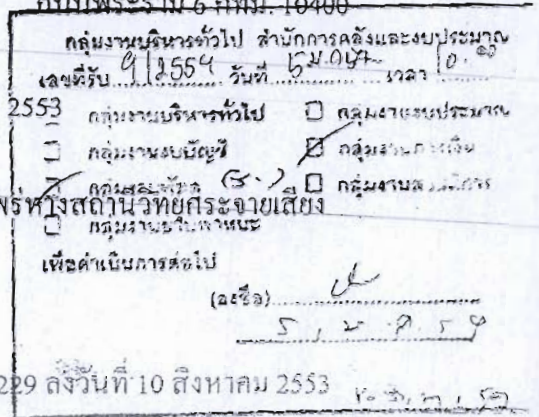 ถนนพระราม 6 กทม. 10400
กลุ่มงานบริหารทั่วไป สำนักการคลังและงบประมาณ
เลขที่รับ 9/2554 วันที่ 5 ม.ค. เวลา 10.
2553 กลุ่มงานบริหารทั่วไป กลุ่มงานงบประมาณ
กลุ่มงานงบบัญชี กลุ่มงานการเงิน
กลุ่มงานพัสดุ กลุ่มงานสวัสดิการ
พร่ทางสถานีวิทยุกระจายเสียง
กลุ่มงานยานพาหนะ
เพื่อดำเนินการต่อไป
(ลงชื่อ)
5 ม.ค.
229 ลงวันที่ 10 สิงหาคม 2553